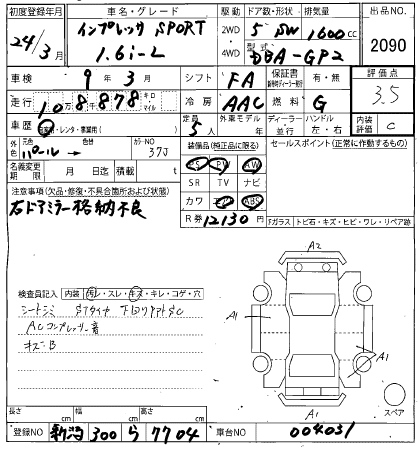 初度登録年月 車名・グレード 駆動 ドア数・形状 排気量 出品NO.
24年/3月 インプレッサ SPORT 1.6i-L 2WD 4WD 5 SW 1600cc 2090
型式 DBA-GP2
車検 9年 3月 シフト FA 保証書 有・無 評価点 3.5
走行 10万8千878 キロ マイル 冷房 AAC 燃料 G
車歴 自家用・レンタ・事業用( ) 定員 5人 外車モデル 年 ディーラー 並行 ハンドル 左・右 内装評価 C
外色 元色 パール → 色替 カラーNO 37J 装備品(純正品に限る) セールスポイント(正常に作動するもの)
PS PW AW
名義変更期限 月 日迄 積載 t SR TV ナビ
注意事項(欠品・修復・不具合箇所および状態) カワ エアB ABS
右ドアミラー格納不良 R券 12,130円 Fガラス トビ石・キズ・ヒビ・ワレ・リペア跡
A2
検査員記入 内装 汚レ・スレ・キズ・キレ・コゲ・穴
シートシミ
ACコンプレッサー音
キズB
A1
A1
A1
スペア
長さ cm 幅 cm 高さ cm
登録NO 新潟 300 ら 7704 車台NO 004031